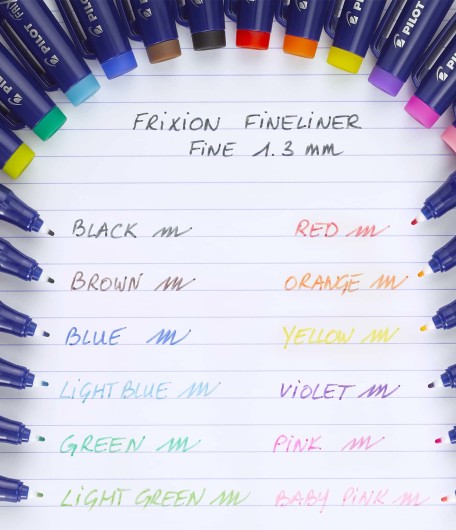 PILOT
PILOT
PILOT
PILOT
FRIXION FINELINER
FINE 1.3 mm
BLACK
RED
BROWN
ORANGE
BLUE
YELLOW
LIGHT BLUE
VIOLET
GREEN
PINK
LIGHT GREEN
BABY PINK